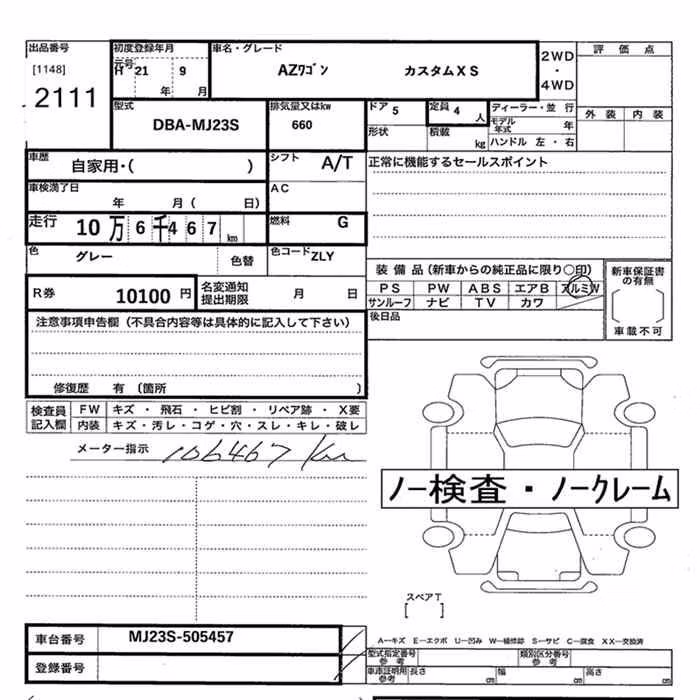 出品番号 初度登録年月 車名・グレード 2WD 評価点
[1148] 元号 H 21 9 AZﾜｺﾞﾝ カスタムXS ・
2111 年 月 4WD
型式 排気量又はkw ドア 5 定員 4 人 ディーラー・並 行 外装 内装
DBA-MJ23S 660 形状 積載 kg モデル年式 年
ハンドル 左・右
車歴 自家用・( ) シフト A/T 正常に機能するセールスポイント
車検満了日 年 月( 日) AC
走行 10万6千467km 燃料 G
色 グレー 色替 色コード ZLY
装備品(新車からの純正品に限り○印) 新車保証書の有無
R券 10100円 名変通知提出期限 月 日 PS PW ABS エアB アルミW
サンルーフ ナビ TV カワ 車載不可
注意事項申告欄(不具合内容等は具体的に記入して下さい) 後日品
修復歴 有(箇所 )
検査員記入欄 FW キズ・飛石・ヒビ割・リペア跡・X要
内装 キズ・汚レ・コゲ・穴・スレ・キレ・破レ
メーター指示 106467 Km
ノー検査・ノークレーム
スペアT
[ ]
車台番号 MJ23S-505457 A—キズ E—エクボ U—凹み W—補修跡 S—サビ C—腐食 XX—交換済
登録番号 型式指定番号参考 類別区分番号参考
車庫証明用参考 長さ cm 幅 cm 高さ cm